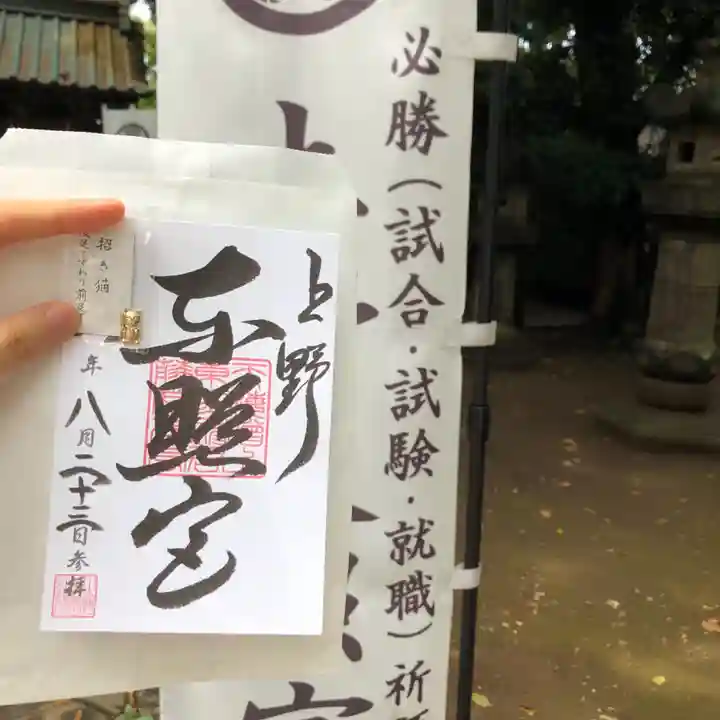 必勝（試合・試験・就職）祈
上
宮
上野
東照宮
年八月二十三日参拝
招き猫